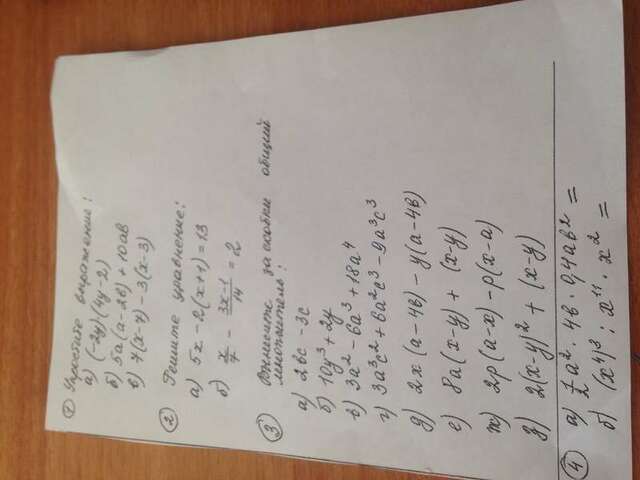 ① Упростите выражение:
а) (-2y)·(4y-2)
б) 5a(a-2b)+10ab
в) 7(x-7)-3(x-3)
② Решите уравнение:
а) 5x-2(x+1)=13
б) x/7 - (3x-1)/14 = 2
③ Вынесите за скобки общий
множитель:
а) 2bc-3c
б) 10y³+2y
в) 3a²-6a³+18a⁴
г) 3a³c²+6a²c³-9a³c³
д) 2x(a-4b)-y(a-4b)
е) 8a(x-y)+(x-y)
ж) 2p(a-x)-p(x-a)
з) 2(x-y)²+(x-y)
④ а) 1/2a²·4b·0,4ab²=
б) (x⁴)³:x¹¹·x²=